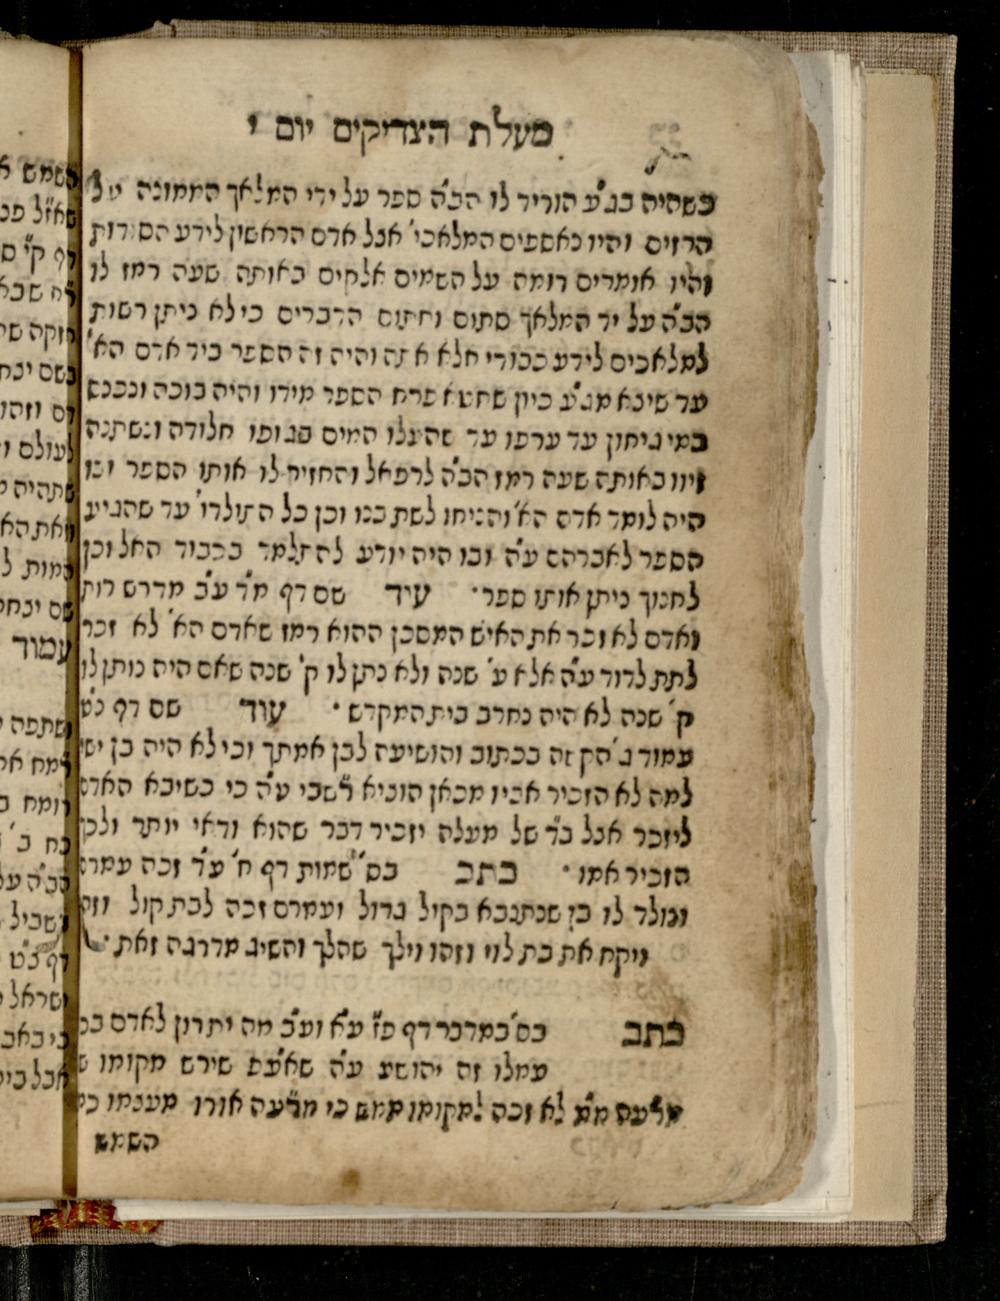 מעלת הצדיקים יום י
כשהיה בג"ע הוריד לו הב"ה ספר על ידי המלאך הממונה על
הרזים והיו נאספים המלאכי' אצל אדם הראשון לידע הסודות
והיו אומרים רומה על השמים אלקים באותה שעה רמז לו
הב"ה על יד המלאך סתום וחתום הדברים כי לא ניתן רשות
למלאכים לידע כבודי אלא אתה והיה זה הספר ביד אדם הא'
עד שיצא מג"ע כיון שחטא פרח הספר מידו והיה בוכה ונכנס
במי גיחון עד ערפו עד שהעלו המים בגופו חלודה ונשתנה
זיוו באותה שעה רמז הב"ה לרפאל והחזיר לו אותו הספר ובו
היה לומד אדם הא' והניחו לשת בנו וכן כל התולדו' עד שהגיע
הספר לאברהם ע"ה ובו היה יודע להתלמד בכבוד האל וכן
לחנוך ניתן אותו ספר· עוד שם דף מ"ד ע"ב מדרש רות
ואדם לא זכר את האיש המסכן ההוא רמז שאדם הא' לא זכר
לתת לדוד ע"ה אלא ע' שנה ולא נתן לו ק' שנה שאם היה נותן לו
ק' שנה לא היה נחרב בית המקדש· עוד שם דף נ"ט
עמוד ג' הק' זה בכתוב והושיעה לבן אמתך וכי לא היה בן ישי
למה לא הזכיר אביו מכאן הוציא רשב"י ע"ה כי כשיבא האדם
ליזכר אצל ב"ד של מעלה יזכיר דבר שהוא ודאי יותר ולכן
הזכיר אמו· כתב בס' שמות דף ח' ע"ד זכה עמרם
ונולד לו בן שנתנבא בקול גדול ועמרם זכה לבת קול וזהו
ויקח את בת לוי וזהו וילך שהלך והשיג מדרגה זאת·
כתב בס' במדבר דף פ"ז ע"א וע"ב מה יתרון לאדם בכל
עמלו זה יהושע ע"ה שאע"פ שירש מקומו
לא זכה למקומו ממש כי מר"עה אורו מעצמו
השמש